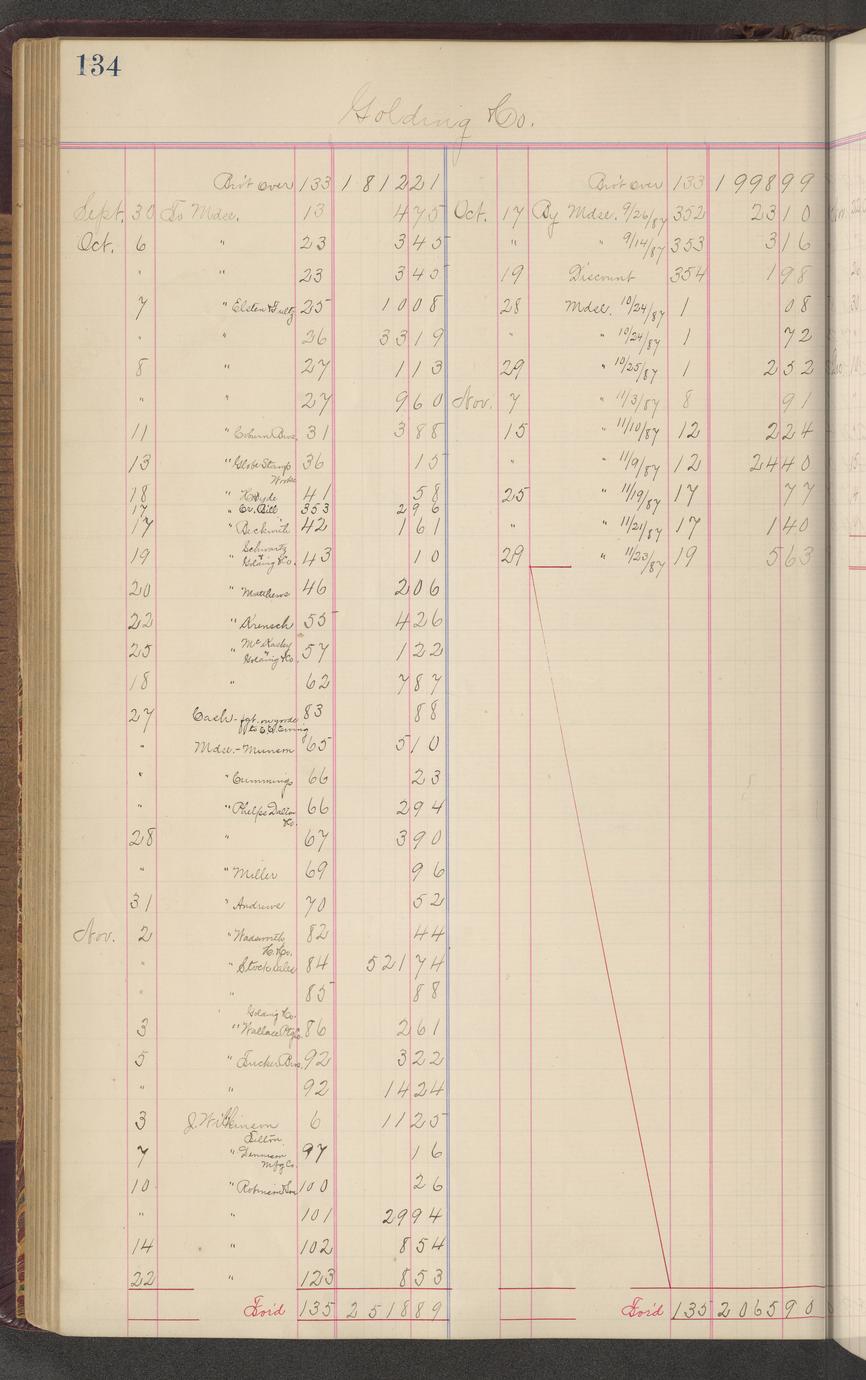 134
Golding & Co.
Bro't over 133 1 812 21
Sept. 30 To Mdse. 13 4 75
Oct. 6 " 23 3 45
" " 23 3 45
7 " Elsten & Sultz 25 10 08
" " 26 33 19
8 " 27 1 13
" " 27 9 60
11 " Coburn Bros. 31 3 88
13 " Globe Stamp Works 36 15
18 " Hyde 41 58
17 " Cr. Bill 353 2 96
17 " Beckwith 42 1 61
19 " Schwartz Golding & Co. 43 10
20 " Matthews 46 2 06
22 " Krensch 55 4 26
25 " Golding & Co. 57 1 22
18 " 62 7 87
27 Cash - fgt. on goods to 83 88
" Mdse. - Munson 65 5 10
" " Cummings 66 23
" " Phelps Dalton & Co. 66 2 94
28 " 67 3 90
" " Miller 69 96
31 " Andrews 70 52
Nov. 2 " Wadsworth H. & Co. 82 44
" " Stock sales 84 521 74
" " 85 88
Golding & Co.
3 " Wallace Ptg. Co. 86 2 61
5 " Tucker Bros. 92 3 22
" " 92 14 24
3 J. Wilkinson 6 11 25
Tilton
7 " Dennison Mfg Co. 97 16
10 " Robinson & Son 100 26
" " 101 29 94
14 " 102 8 54
22 " 123 8 53
For'd 135 2 518 89
Bro't over 133 1 998 99
Oct. 17 By Mdse. 9/26/87 352 23 10
" " 9/14/87 353 3 16
19 Discount 354 1 98
28 Mdse. 10/24/87 1 08
" " 10/24/87 1 72
29 " 10/25/87 1 2 52
Nov. 7 " 11/3/87 8 91
15 " 11/10/87 12 2 24
" " 11/9/87 12 24 40
25 " 11/19/87 17 77
" " 11/21/87 17 1 40
29 " 11/23/87 19 5 63
For'd 135 2 065 90